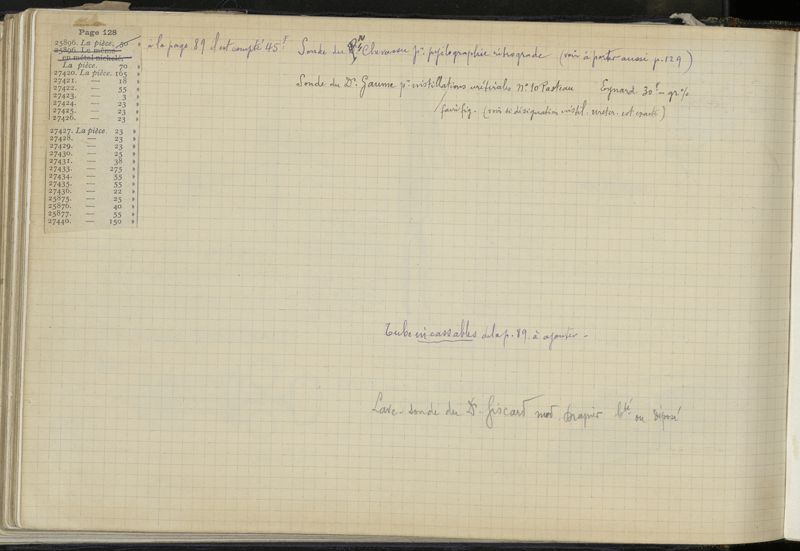 Page 128
25896. La pièce. 80 »
25896. Le même
en métal nickelé,
La pièce. 70 »
27420. La pièce. 165 »
27421. — 18 »
27422. — 55 »
27423. — 3 »
27424. — 23 »
27425. — 23 »
27426. — 23 »
27427. La pièce. 23 »
27428. — 23 »
27429. — 23 »
27430. — 25 »
27431. — 38 »
27433. — 275 »
27434. — 55 »
27435. — 55 »
27436. — 22 »
25875. — 25 »
25876. — 40 »
25877. — 55 »
27440. — 150 »
à la page 89 il est compté 45f Sonde du Chevassu pr pyélographie rétrograde (voir à porter aussi p. 129)
Sonde du Dr pr instillations urétérales No 10 Pasteau Eynard 30f - gr. %
faire fig. (voir si désignation instil. ureter. est exacte)
Tube incassables de la p. 89 à ajouter -
Lave-sonde du Dr Giscard mod. Drapier bté ou déposé